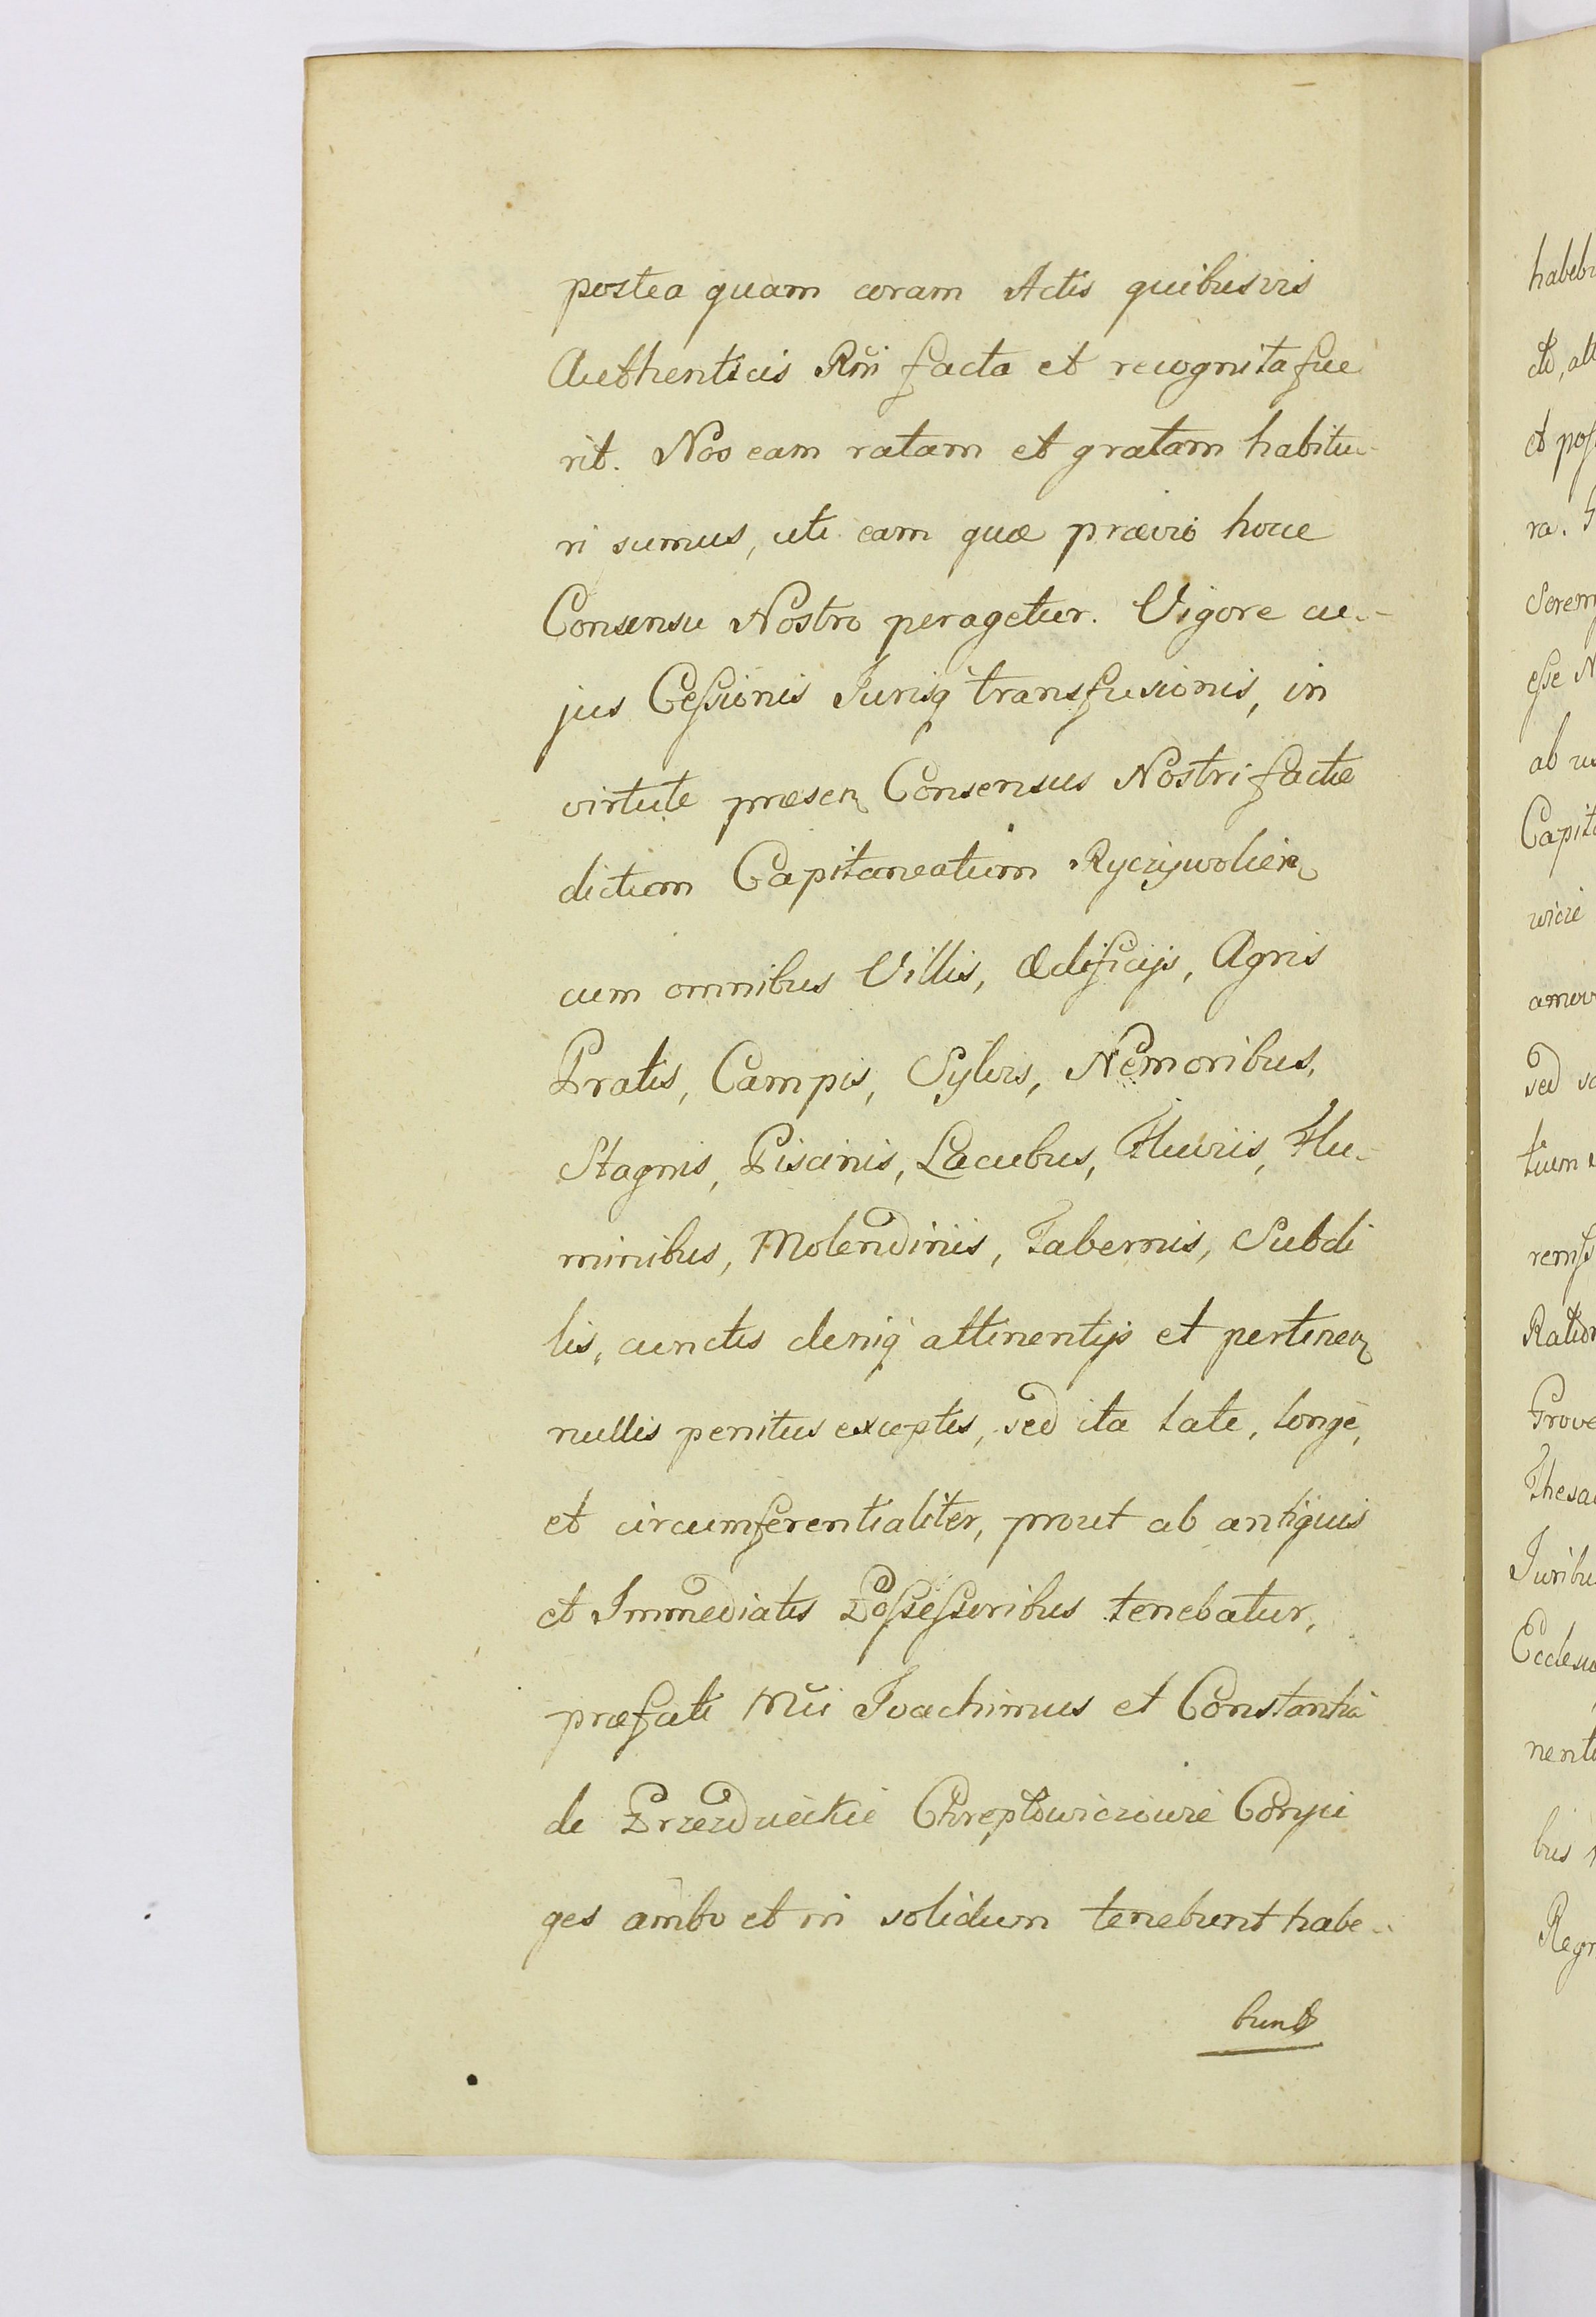 postea quam coram Actis quibusvis
Authenticis Rni facta et recognita fue
rit. Nos eam ratam et gratam habitu-
ri sumus, uti eam quæ prævio hocce
Consensu Nostro peragetur. Vigore cu-
jus Ceſsionis Jurisq transfusionis, in
virtute præsen Consensus Nostri factæ
dictum Capitaneatum Ryczywolien
cum omnibus Villis, Ædificijs, Agris
Pratis, Campis, Sylvis, Nemoribus,
Stagnis, Piscinis, Lacubus, Fluviis, Flu-
minibus, Molendinis, Tabernis, Subdi
tis, cunctis deniq attinentijs et pertinen
nullis penitus exceptis, sed ita late, longé,
et circumferentialiter, prout ab antiquis
et Immediatis Poſseſsoribus tenebatur,
præfati Mci Joachimus et Constantia
de Przezdzieckie Chreptowiczowie Conjui
ges ambo et in solidum tenebunt habe-
bunt
habebu
cto, att
et poſ
ra.
Serem
eſse N
ab u
Capita
wicze
amov
sed
tuem
remſs
Ration
Prove
Thesau
Juribu
Ecclesi
nenti
bus
Regn